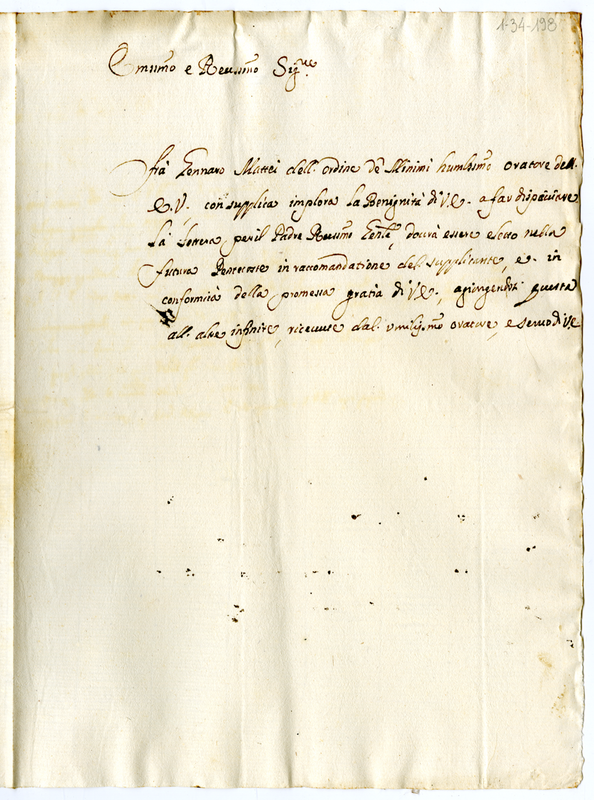 1-34-198
Emīmo e Reuīmo Sig.re
frà Gennaro Mattei dell. ordine dè Minimi humilissīmo oratore dell.
E.V. con supplica implora la Benignità di V.E. a far dispacciare
la lettera, per il Padre Reuīmo Genle, dourà essere eletto nella
futura Pentecoste in raccomandatione del supplicante, e. in
conformità della promessa gratia di V.E., questa
all. altre infinite, riceuute dal. umilissīmo oratore, e seruo di VE